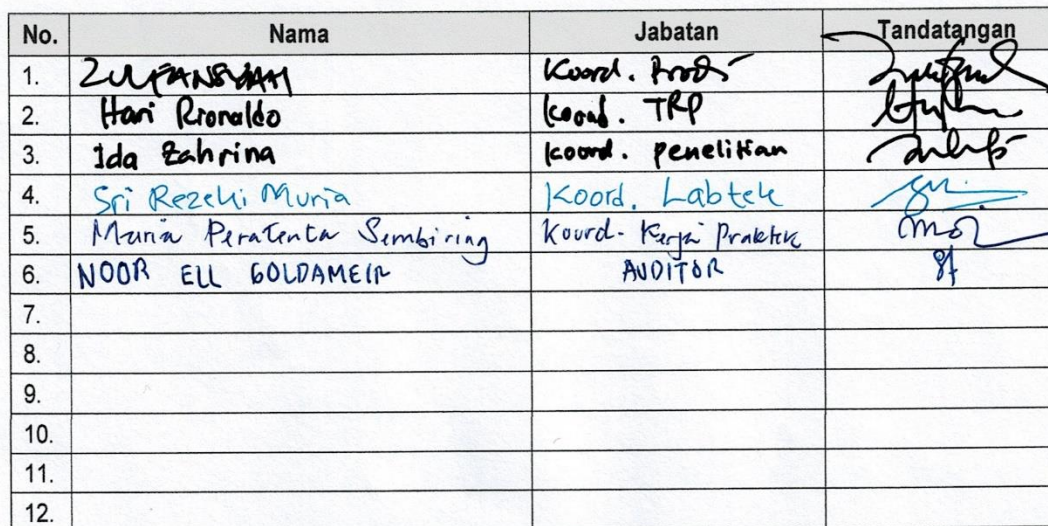 No. Nama Jabatan Tandatangan
1. ZULFANSYAH Koord. Prodi
2. Hari Rionaldo Koord. TRP
3. Ida Zahrina Koord. penelitian
4. Sri Rezeki Muria Koord. Labtek
5. Maria Peratenta Sembiring Koord. Kerja Praktek
6. NOOR ELL GOLDAMEIR AUDITOR
7.
8.
9.
10.
11.
12.